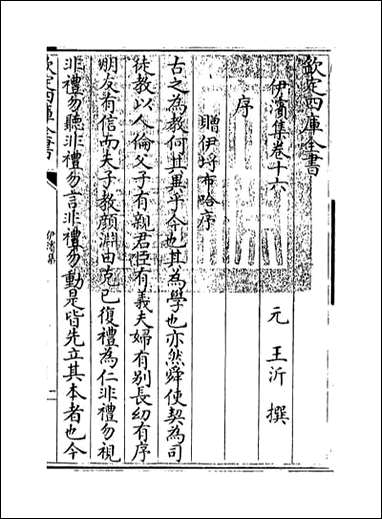 欽定四庫全書
伊濱集卷十六
元 王沂 撰
序
贈伊埒布哈序
古之為教何其異乎今也其為學也亦然舜使契為司
徒教以人倫父子有親君臣有義夫婦有別長幼有序
朋友有信而夫子教顔淵由克己復禮為仁非禮勿視
非禮勿聽非禮勿言非禮勿動是皆先立其本者也今
欽定四庫全書
伊濱集